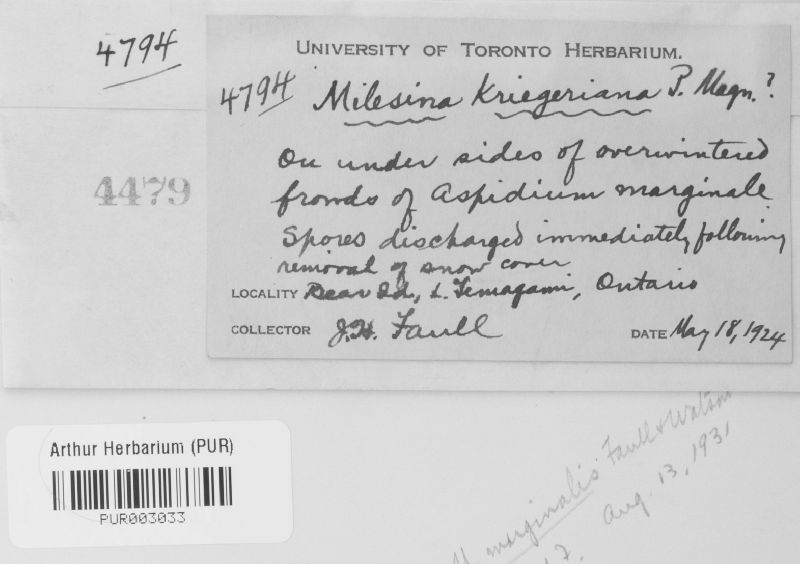 4794
UNIVERSITY OF TORONTO HERBARIUM.
4794 Milesina Kriegeriana P. Magn.?
On under sides of overwintered
fronds of Aspidium marginale
Spores discharged immediately following
removal of snow cover
LOCALITY Bear Id., L. Temagami, Ontario
COLLECTOR J.H. Faull
DATE May 18, 1924
4479
Arthur Herbarium (PUR)
PUR003033
M. marginalis Faull & Watson
Aug. 13, 1931